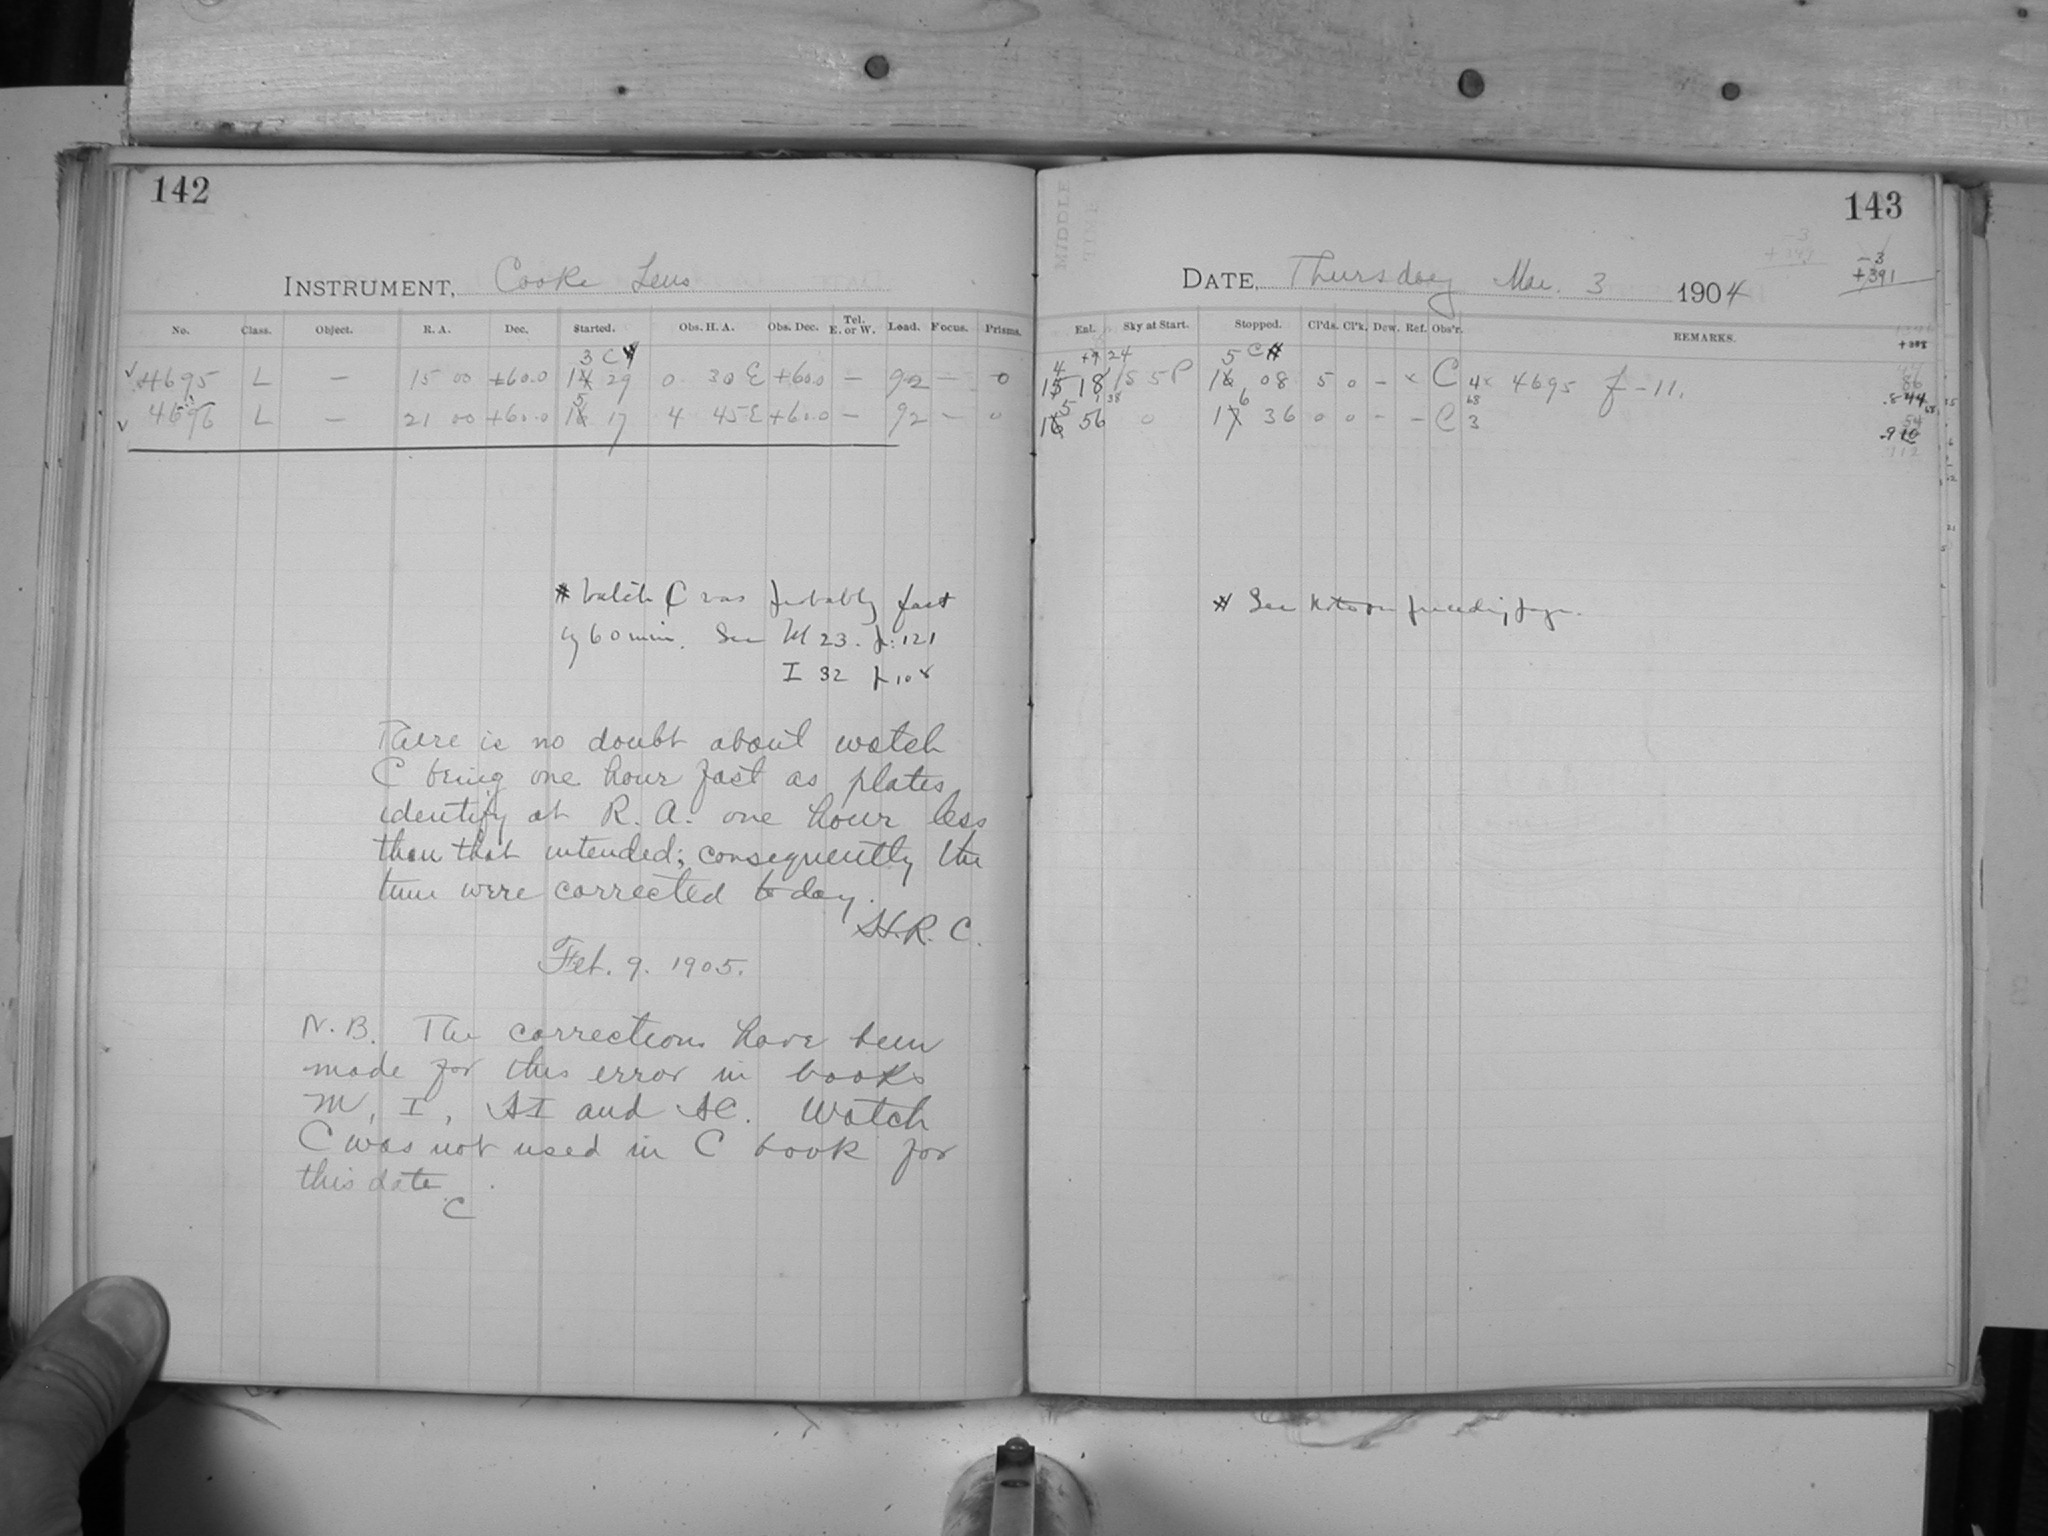 142
INSTRUMENT, Cooke Lens
No. Class. Object. R. A. Dec. Started. Obs. H. A. Obs. Dec. Tel. E. or W. Load. Focus. Prisms.
3 C #
✓ 4695 L — 15 00 +60.0 14 29 0 30 E +60.0 — 92 — 0
5
✓ 4696 L — 21 00 +60.0 16 17 4 45 E +60.0 — 92 — 0
# Watch C was probably fast
by 60 min. See M 23. p. 121
I 32 p 108
There is no doubt about watch
C being one hour fast as plates
identify at R. A. one hour less
than that intended; consequently the
time were corrected to day.
H. R. C.
Feb. 9. 1905.
N. B. The corrections have been
made for this error in books
M, I, AI and AC. Watch
C was not used in C book for
this date
C
143
DATE, Thursday Mar. 3 1904
-3
+391
Exl. Sky at Start. Stopped. Cl'ds. Cl'k. Dew. Ref. Obs'r. REMARKS.
4 24 5 C #
15 18 15 5 P 16 08 5 0 - x C 4x 4695 f - 11.
5 38 6 68
16 56 0 17 36 0 0 - - C 3
# See note on preceding page.